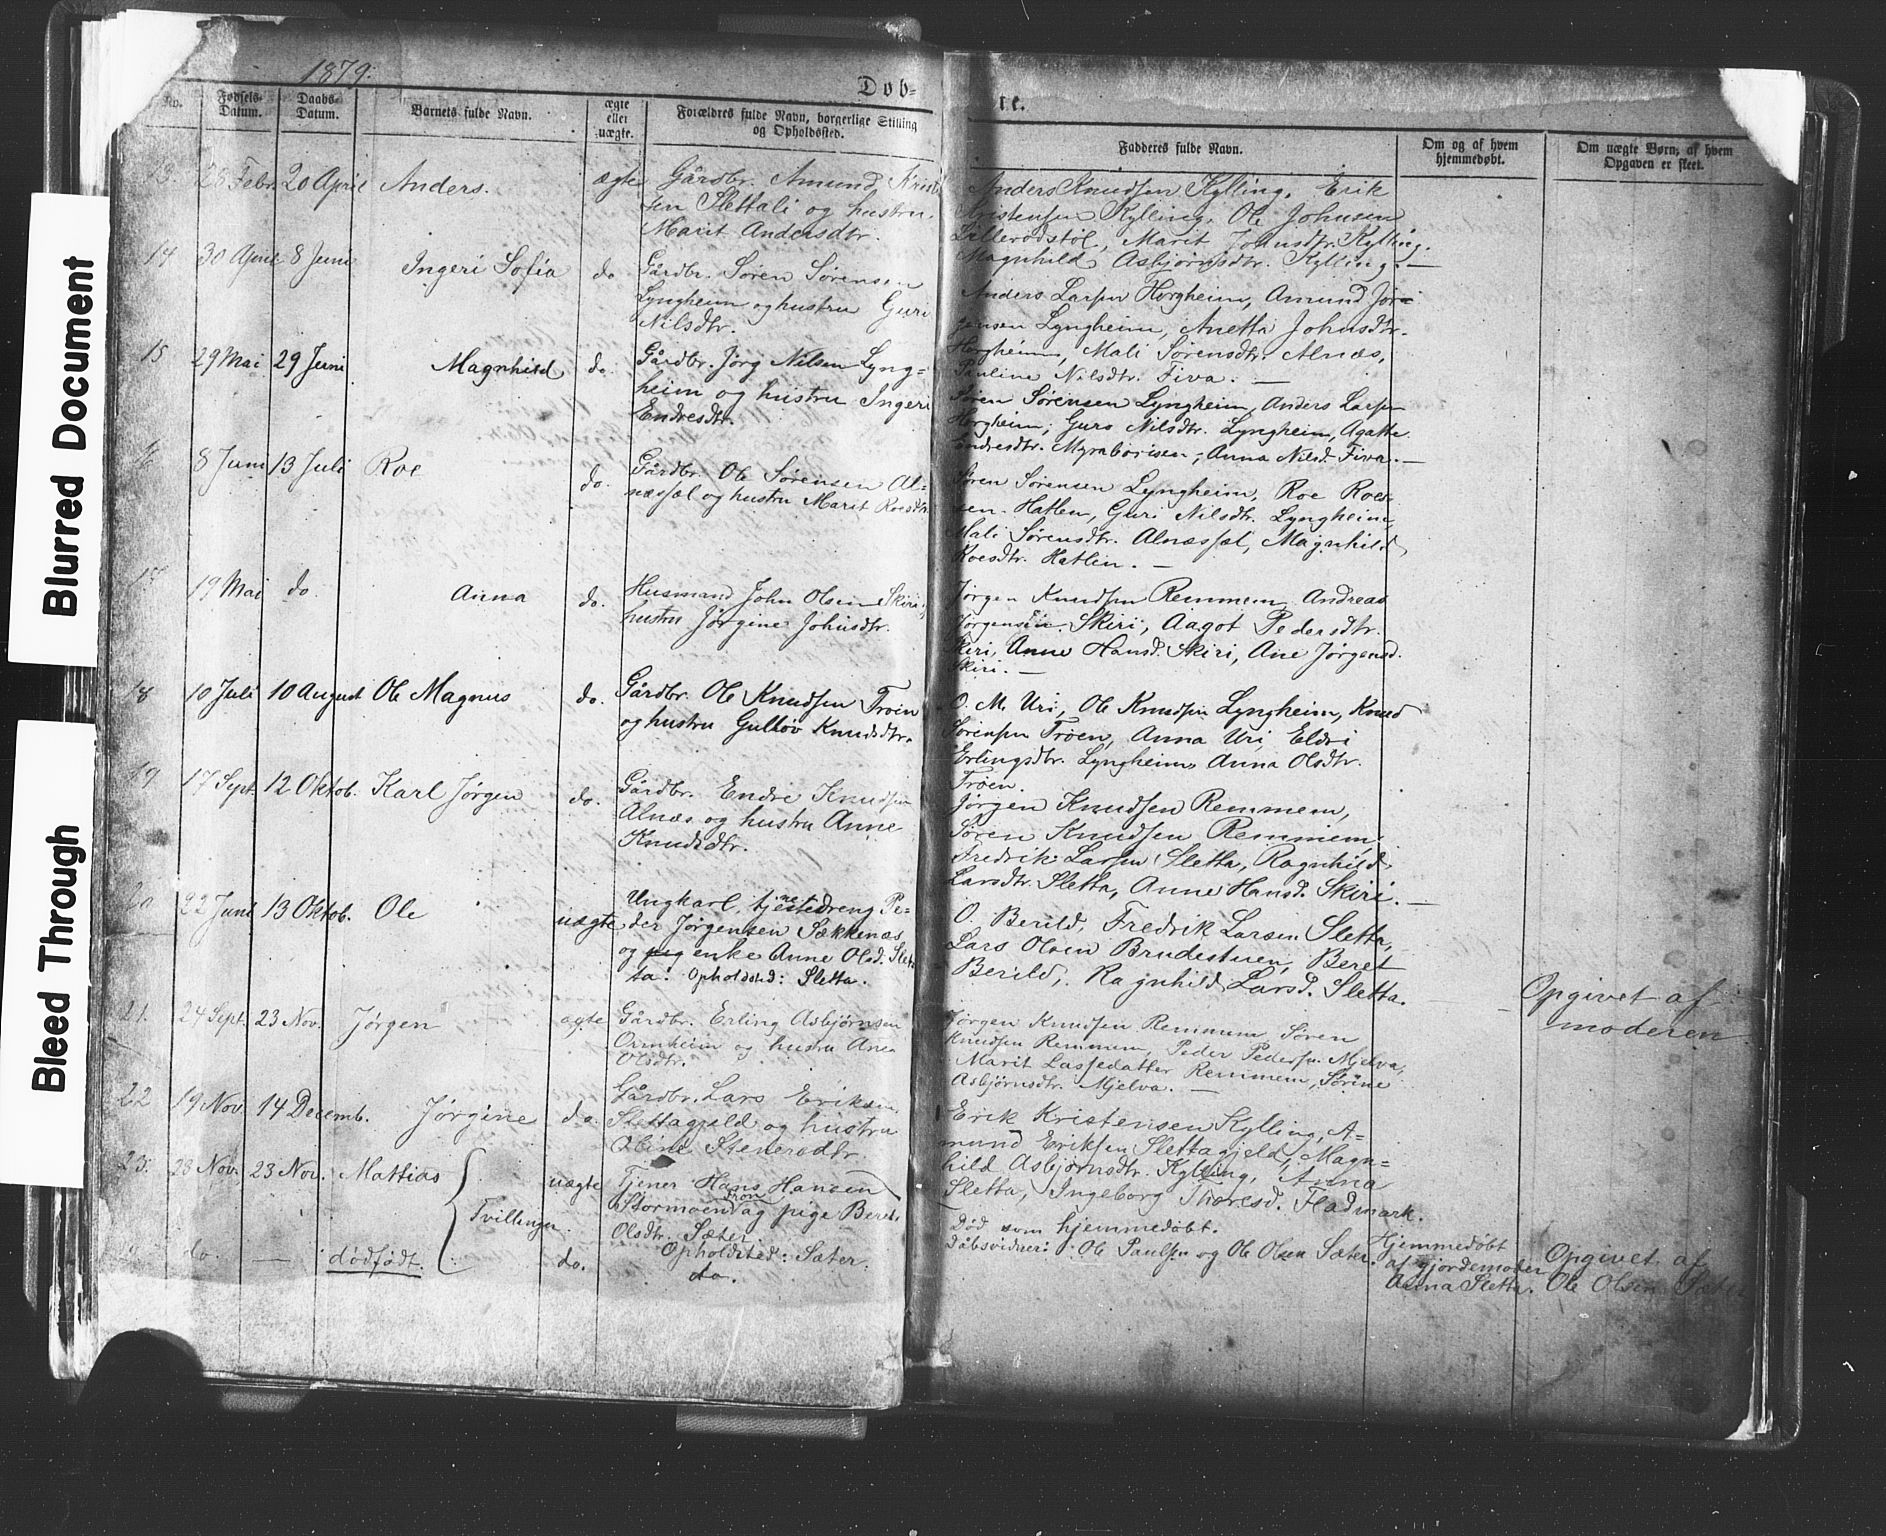 Blurred Document
Bleed Through
1879.
Døb-
te.
No.
Fødsels-
Datum.
Daabs-
Datum.
Barnets fulde Navn.
ægte
eller
uægte.
Forældres fulde Navn, borgerlige Stilling
og Opholdssted.
Fadderes fulde Navn.
Om og af hvem
hjemmedøbt.
Om uægte Børn; af hvem
Opgaven er skeet.
13. 28 Febr. 20 April Anders. ægte Gårdbr. Amund Krist
sen Slettali og hustru
Marit Andersdtr.
Anders Knudsen Kylling, Erik
Kristensen Kylling, Ole Johnsen
Lillerødstøl, Marit Johnsdtr. Kylling.
Magnhild Asbjørnsdtr. Kylling. —
14 30 April 8 Juni Ingeri Sofia do. Gårdbr. Søren Sørensen
Lyngheim og hustru Guri
Nilsdtr.
Anders Larsen Horgheim, Amund Jør-
gensen Lyngheim, Anetta Johnsdtr.
Horgheim, Mali Sørensdtr. Alnæs,
Pauline Nilsdtr. Fiva. —
15 29 Mai 29 Juni Magnhild do. Gårdbr. Jørg Nilsen Lyng=
heim og hustru Ingeri
Endresdtr.
Søren Sørensen Lyngheim, Anders Larsen
Horgheim, Guro Nilsdtr. Lyngheim, Agatte
Endresdtr. Myrabørisen, Anna Nilsd. Fiva. —
16 8 Juni 13 Juli Roe do. Gårdbr. Ole Sørensen Al=
næssæl og hustru Marit Roesdtr.
Søren Sørensen Lyngheim, Roe Roe-
sen Hatlen, Guri Nilsdtr. Lyngheim,
Mali Sørensdtr. Alnæssæl, Magnhild
Roesdtr. Hatlen. —
17 19 Mai do. Anna do. Husmand John Olsen Skiri,
hustru Jørgine Johnsdtr.
Jørgen Knudsen Remmem, Andreas
Jørgensen Skiri, Aagot Pedersdtr.
Skiri, Anne Hansd. Skiri, Ane Jørgensd.
Skiri. —
18 10 Juli 10 August Ole Magnus do. Gårdbr. Ole Knudsen Trøen
og hustru Gulløv Knudsdtr.
O. M. Uri, Ole Knudsen Lyngheim, Knud
Sørensen Trøen, Anna Uri, Eldri
Erlingsdtr. Lyngheim, Anna Olsdtr.
Trøen.
19 17 Sept. 12 Oktob. Karl Jørgen do. Gårdbr. Endre Knudsen
Alnæs og hustru Anne
Knudsdtr.
Jørgen Knudsen Remmem,
Søren Knudsen Remmem,
Fredrik Larsen Sletta, Ragnhild
Larsdtr. Sletta, Anne Hansd. Skiri. —
20 22 Juni 13 Oktob. Ole uægte Ungkarl, tjenestedreng Pe=
der Jørgensen Sækkenæs
og pig enke Anne Olsd. Slet
ta. Opholdsted: Sletta.
O. Berild, Fredrik Larsen Sletta,
Lars Olsen Brudestuen, Beret
Berild, Ragnhild Larsd. Sletta.
Opgivet af
moderen
21. 24 Sept. 23 Nov. Jørgen ægte Gårdbr. Erling Asbjørnsen
Ormheim og hustru Ane
Olsdtr.
Jørgen Knudsen Remmem Søren
Knudsen Remmem, Peder Pedersen Mjelva,
Marit Lassedatter Remmem, Sørine
Asbjørnsdtr. Mjelva. —
22 19 Nov. 14 Decemb. Jørgine do. Gårdbr. Lars Eriksen
Slettagjeld og hustru
Oline Stenersdtr.
Erik Kristensen Kylling, A=
mund Eriksen Slettagjeld, Magn=
hild Asbjørnsdtr. Kylling, Anna
Sletta, Ingeborg Thoresd. Fladmark.
23. 28 Nov. 23 Nov. Mattias Tvillinger. uægte Tjener Hans Hansen
Stormoen og pige Beret
Olsdtr. Sæter.
Opholdsted: Sæter.
Død som hjemmedøbt.
Dåbsvidner: Ole Paulsen og Ole Olsen Sæter.
Hjemmedøbt
af gjordemoder
Anna Sletta.
Opgivet af
Ole Olsen Sæter
do. — dødfødt. do. do.